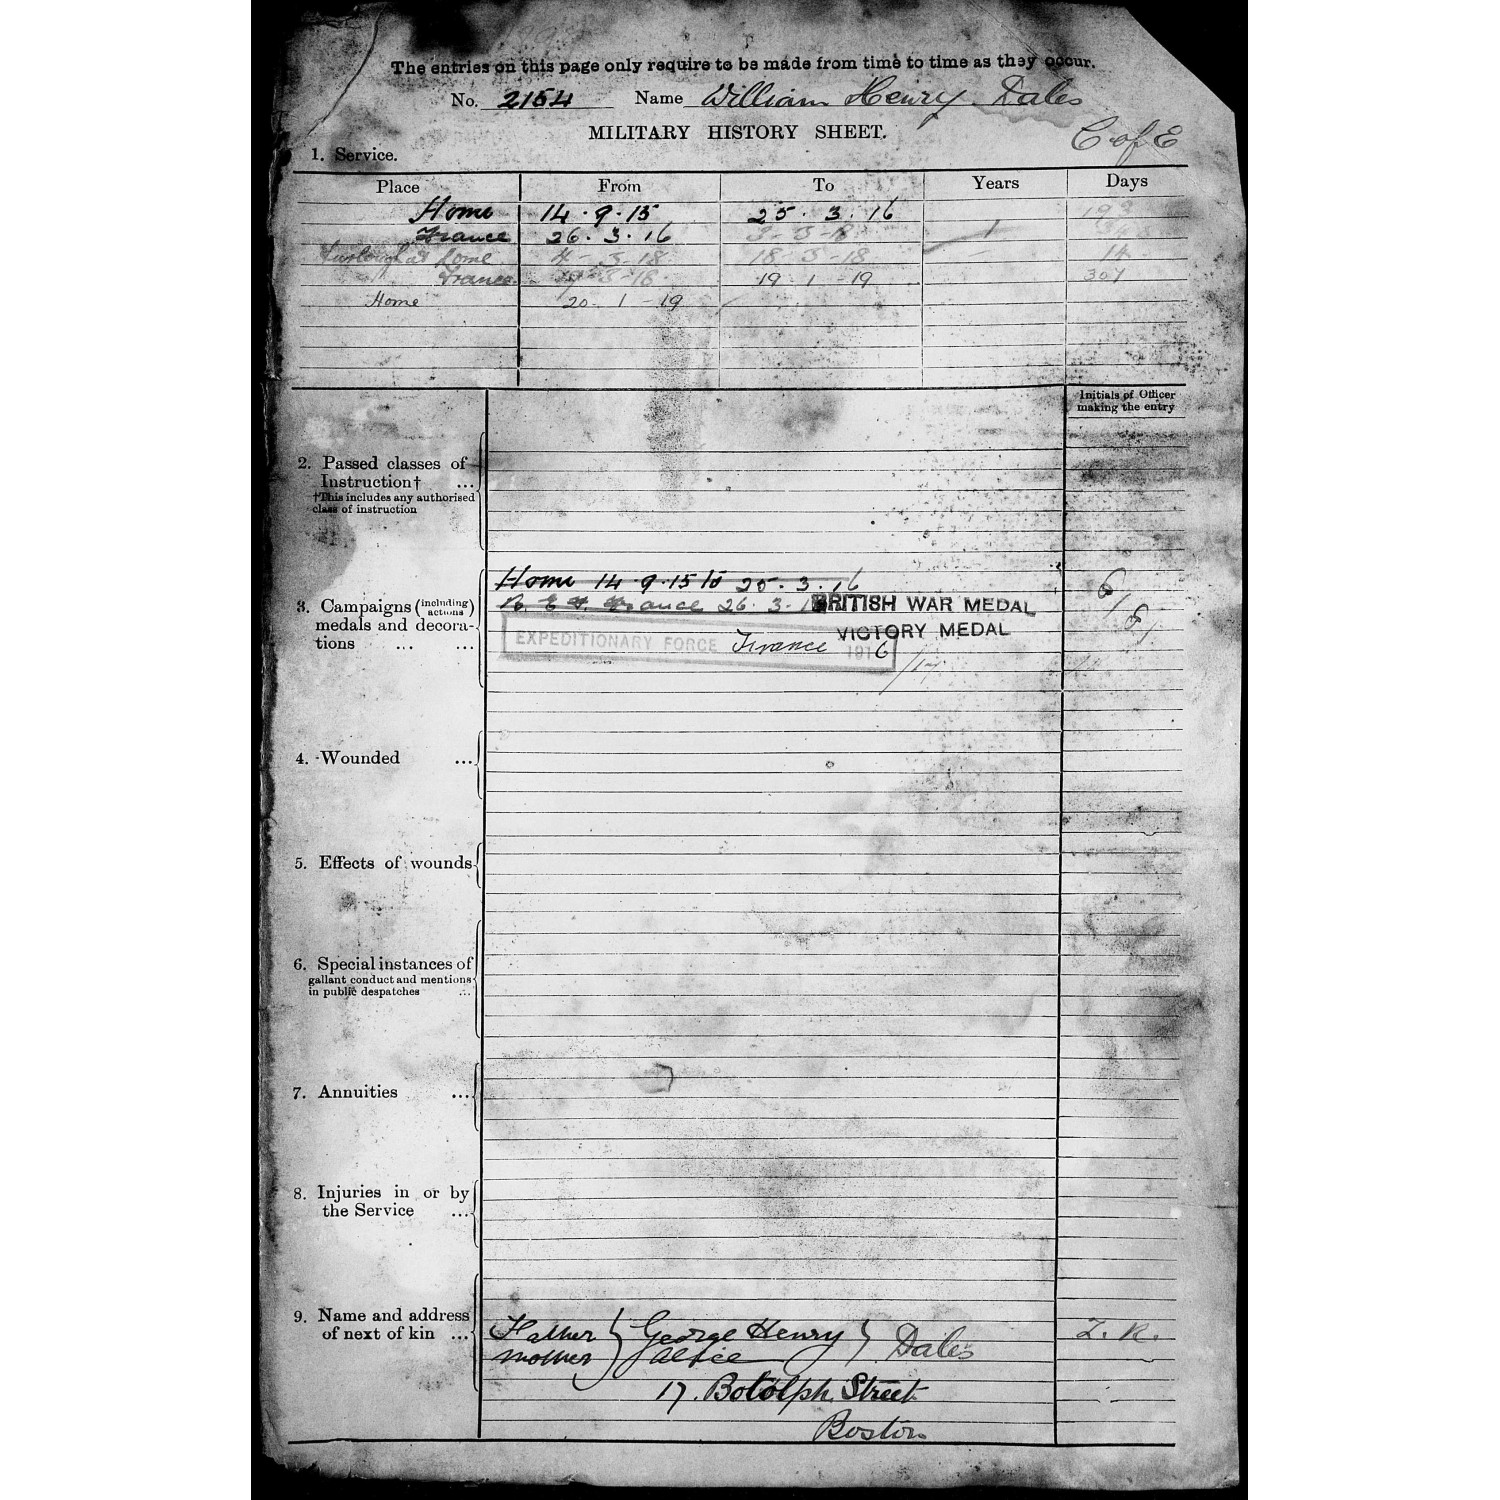 The entries on this page only require to be made from time to time as they occur.
No. 2154 Name William Henry Dales
MILITARY HISTORY SHEET.
C of E
1. Service.
Place From To Years Days
Home 14.9.15 25.3.16
France 26.3.16 3-3-18 1
Furlough at Home 4-3-18 18-3-18 - 14
France 19-3-18 19-1-19 307
Home 20-1-19
Initials of Officer
making the entry
2. Passed classes of
Instruction† ...
†This includes any authorised
class of instruction
Home 14.9.15 to 25.3.16
B.E.F. France 26.3.1 BRITISH WAR MEDAL
VICTORY MEDAL
EXPEDITIONARY FORCE France 1916
/17
3. Campaigns (including actions)
medals and decora-
tions ... ...
4. Wounded ...
5. Effects of wounds
6. Special instances of
gallant conduct and mentions
in public despatches ...
7. Annuities ...
8. Injuries in or by
the Service ...
9. Name and address
of next of kin ...
Father } George Henry } Dales
Mother } Alice
17. Botolph Street
Boston